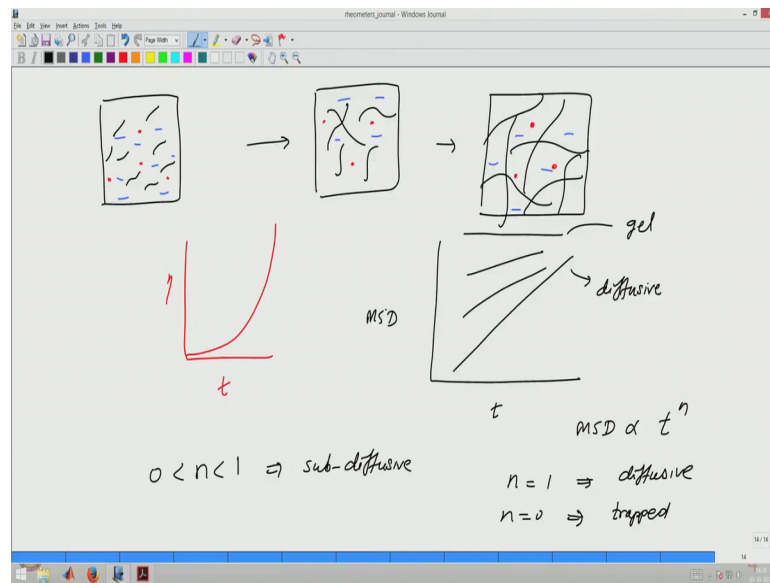 rheometers_journal - Windows Journal
File Edit View Insert Actions Tools Help
Page Width
B I
gel
diffusive
η
MSD
t
t
MSD ∝ t^n
0 < n < 1 ⇒ sub-diffusive
n = 1 ⇒ diffusive
n = 0 ⇒ trapped
14 / 14
14